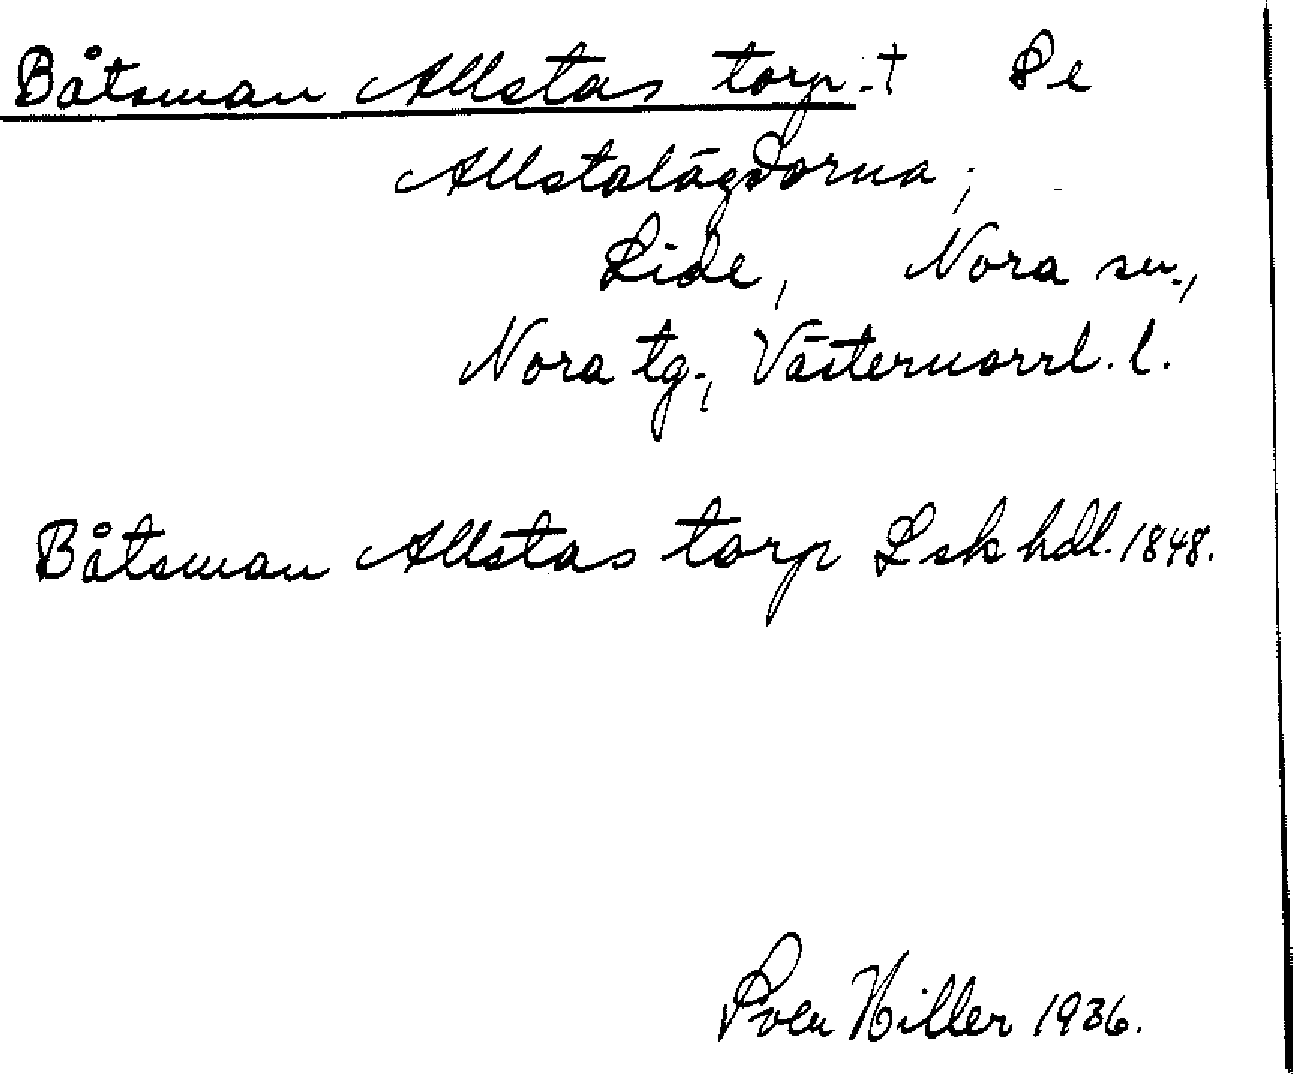 Båtsman Allstas torp. † Se
Allstalägdorna,
Lide, Nora sn.,
Nora tg., Västernorrl. l.
Båtsman Allstas torp Lsk hdl. 1848.
Sven Hiller 1936.